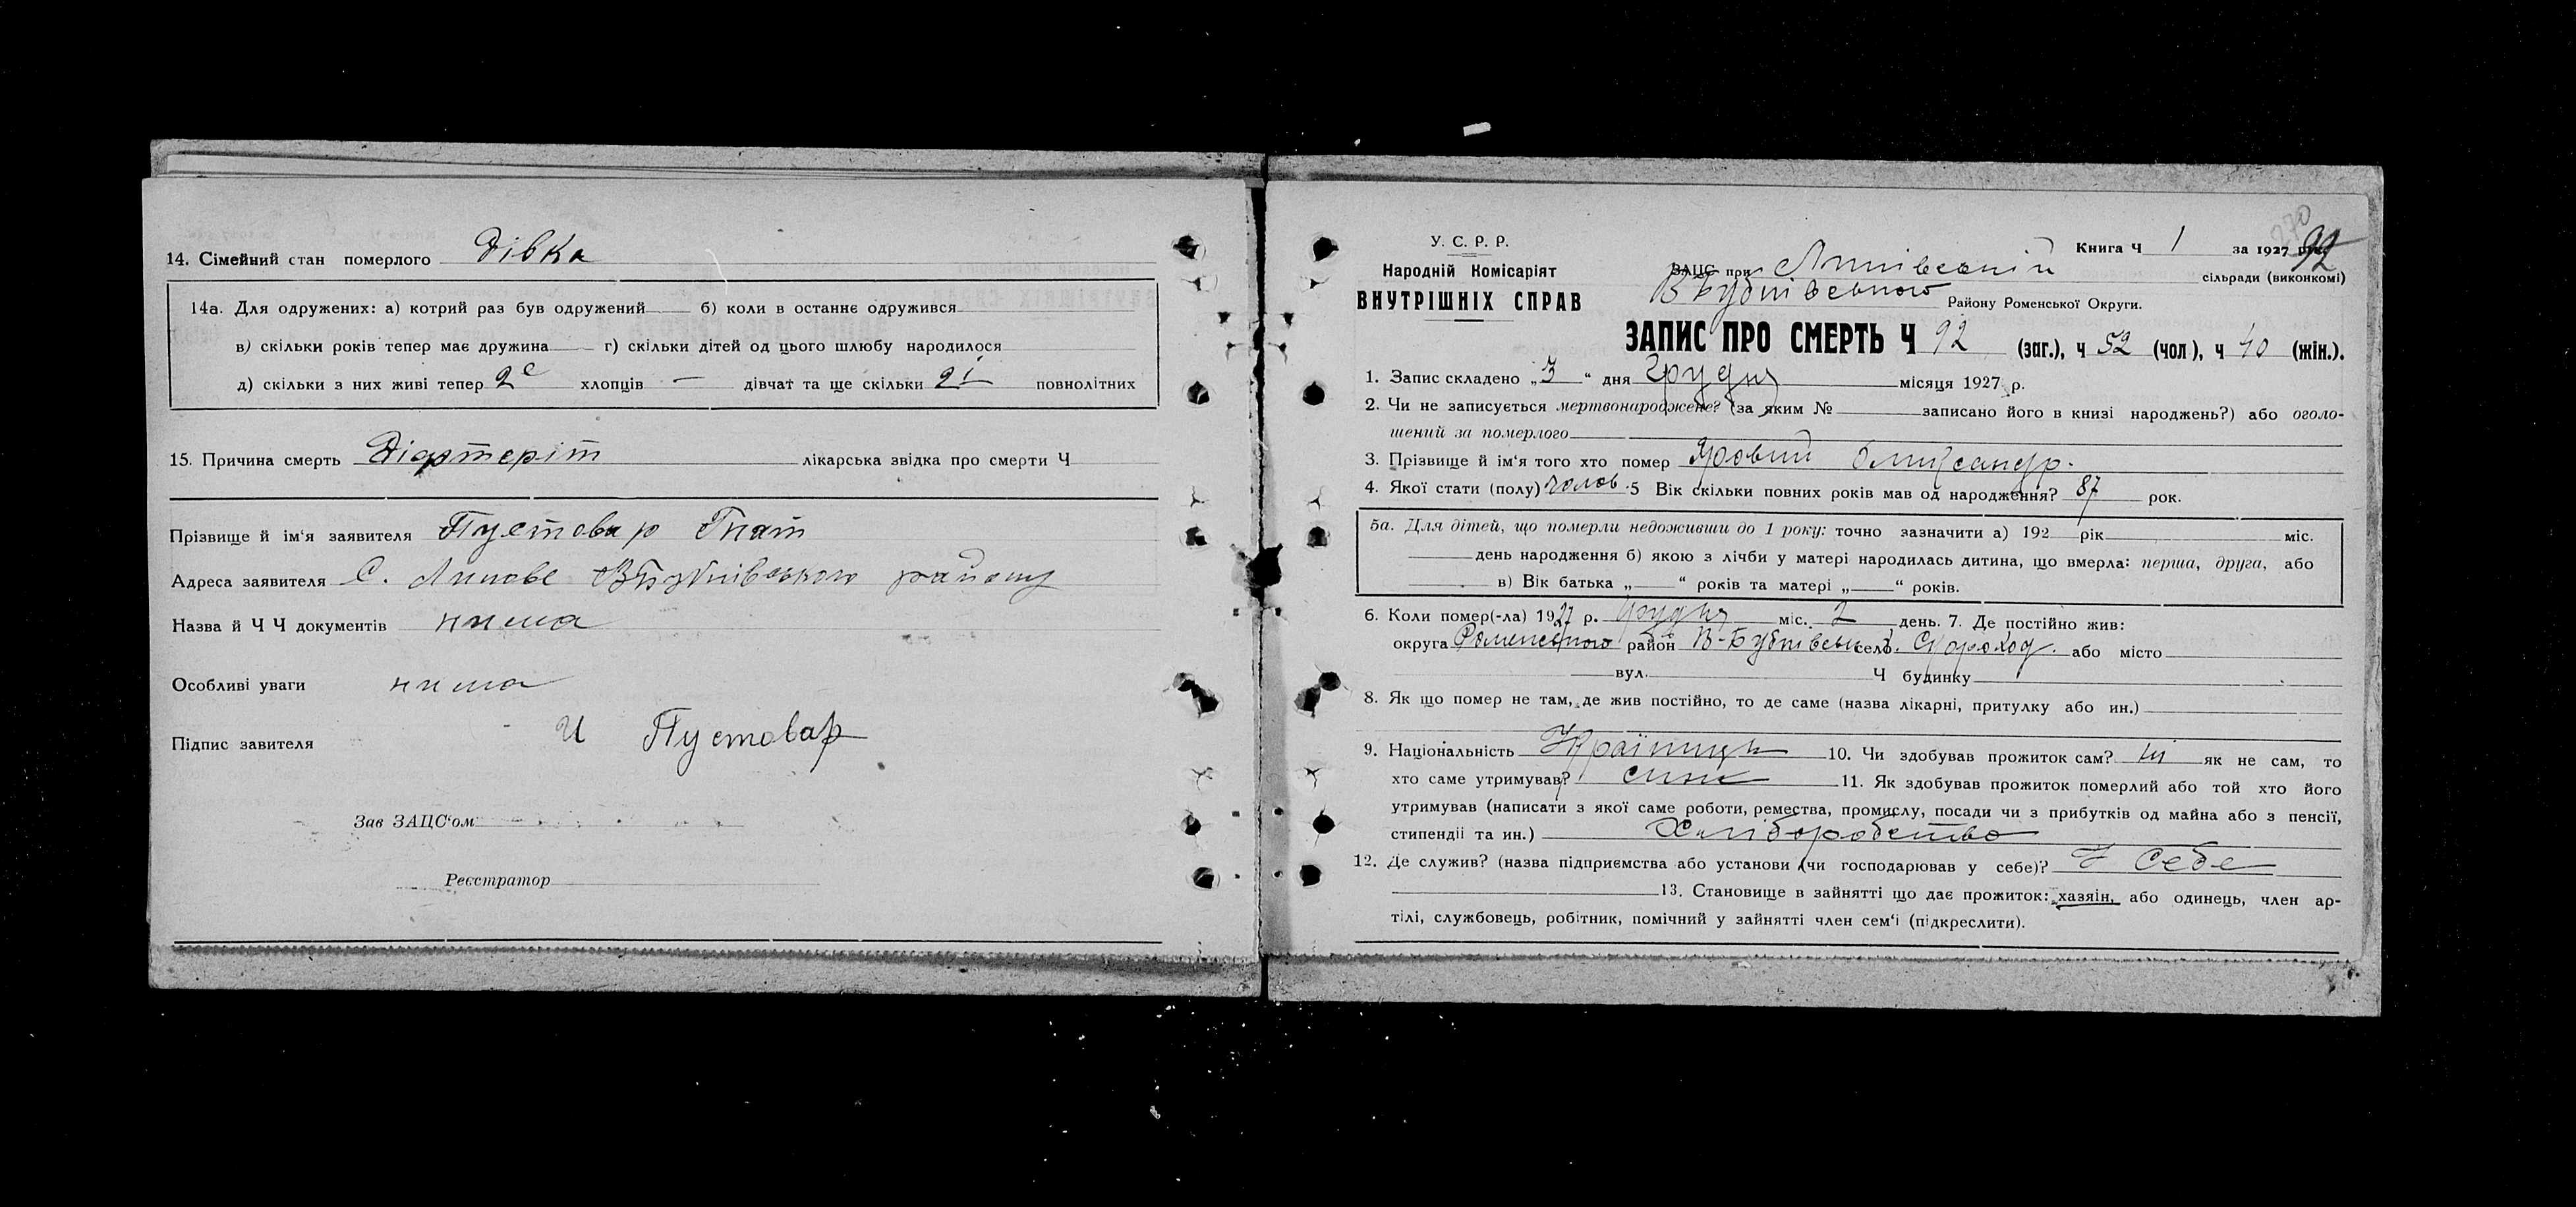 14. Сімейний стан померлого Дівка
14а. Для одружених: а) котрий раз був одружений б) коли в останнє одружився
в) скільки років тепер має дружина г) скільки дітей од цього шлюбу народилося
д) скільки з них живі тепер хлопців — дівчат та ще скільки повнолітних
15. Причина смерть Діфтеріт лікарська звідка про смерти Ч
Прізвище й ім'я заявителя Пустовар Гнат
Адреса заявителя С. Липове В Бубнівського району
Назва й Ч Ч документів нима
Особливі уваги нима
Підпис завителя И Пустовар
Зав ЗАЦС'ом
Реєстратор
270
У. С. Р. Р.
Народній Комісаріят
ВНУТРІШНІХ СПРАВ
Книга Ч 1 за 1927 рік 92
ЗАЦС при Липівській сільради (виконкомі)
В Бубнівського Району Роменської Округи.
ЗАПИС ПРО СМЕРТЬ Ч 92 (заг.), ч 52 (чол), ч 40 (жін.).
1. Запис складено „3“ дня Грудня місяця 1927 р.
2. Чи не записується мертвонароджене? (за яким № записано його в книзі народжень?) або оголо-
шений за померлого
3. Прізвище й ім'я того хто помер Яровий
4. Якої стати (полу) чолов. 5 Вік скільки повних років мав од народження? 87 рок.
5а. Для дітей, що померли недоживши до 1 року: точно зазначити а) 192 рік міс.
день народження б) якою з лічби у матері народилась дитина, що вмерла: перша, друга, або
в) Вік батька „ “ років та матері „ “ років.
6. Коли помер(-ла) 1927 р. грудня міс. 2 день. 7. Де постійно жив:
округа Роменського район В-Бубнівськ. село Скороход. або місто
вул. Ч будинку
8. Як що помер не там, де жив постійно, то де саме (назва лікарні, притулку або ин.)
9. Національність Українець 10. Чи здобував прожиток сам? ні як не сам, то
хто саме утримував? син 11. Як здобував прожиток померлий або той хто його
утримував (написати з якої саме роботи, ремества, промислу, посади чи з прибутків од майна або з пенсії,
стипендії та ин.) Хліборобство
12. Де служив? (назва підприємства або установи (чи господарював у себе)? У Себе
13. Становище в зайнятті що дає прожиток: хазяїн, або одинець, член ар-
тілі, службовець, робітник, помічний у зайнятті член сем'ї (підкреслити).